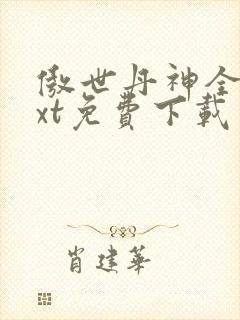 傲世丹神全
xt免費下載
肖建華